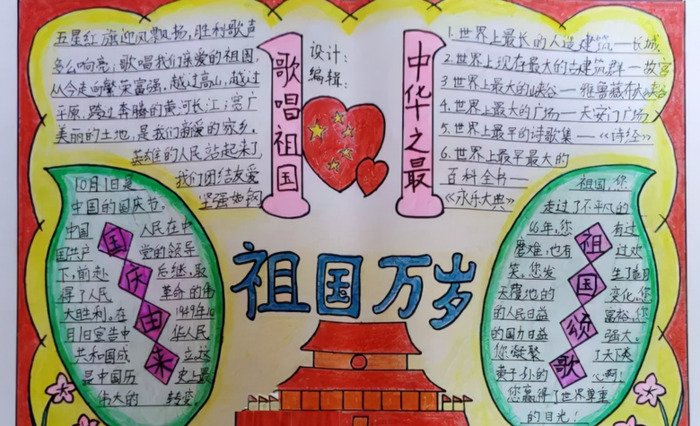 五星红旗迎风飘扬,胜利歌声
多么响亮;歌唱我们亲爱的祖国,
从今走向繁荣富强。越过高山,越过
平原,跨过奔腾的黄河长江;宽广
美丽的土地,是我们亲爱的家乡,
英雄的人民站起来了
我们团结友爱
坚强如钢
歌唱祖国
设计:
编辑:
中华之最
1.世界上最长的人造建筑——长城
2.世界上现存最大的古建筑群——故宫
3.世界上最大的峡谷——雅鲁藏布大峡谷
4.世界上最大的广场——天安门广场
5.世界上最早的诗歌集——《诗经》
6.世界上最早最大的
百科全书——
《永乐大典》
祖国万岁
10月1日是
中国的国庆节。
中国 人民在中
国共产 党的领导
下,前赴 后继,取
得了人民 革命的伟
大胜利。在 1949年10
月1日宣告中 华人民
共和国成 立,这
是中国历 史上最
伟大的 转变
国庆由来
祖国,您
走过了不平凡的
66年,您 有过
磨难,也有 过欢
笑。您发 生了
天覆地的 变化,您
的人民日益 富裕,您
的国力日益 强大。
您凝聚 了天下炎
黄子孙的 心啊!
您赢得了世界尊重
的目光!
祖国颂歌